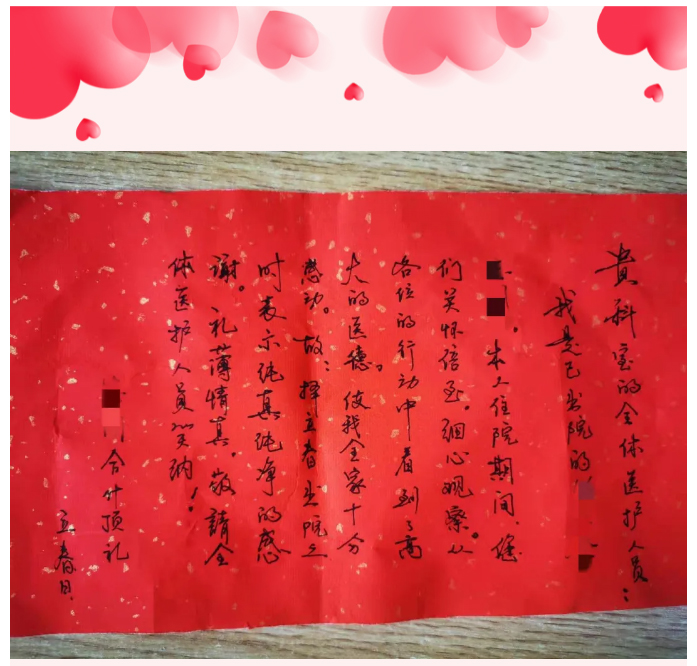 贵科室的全体医护人员：
我是已出院的
本人住院期间、您
们关怀倍至。细心观察。从
各位的行动中看到了高
大的医德。使我全家十分
感动。故：择立春出院之
时表示纯真纯净的感
谢。礼薄情真。敬請全
体医护人员笑纳！
合什顶礼
立春日